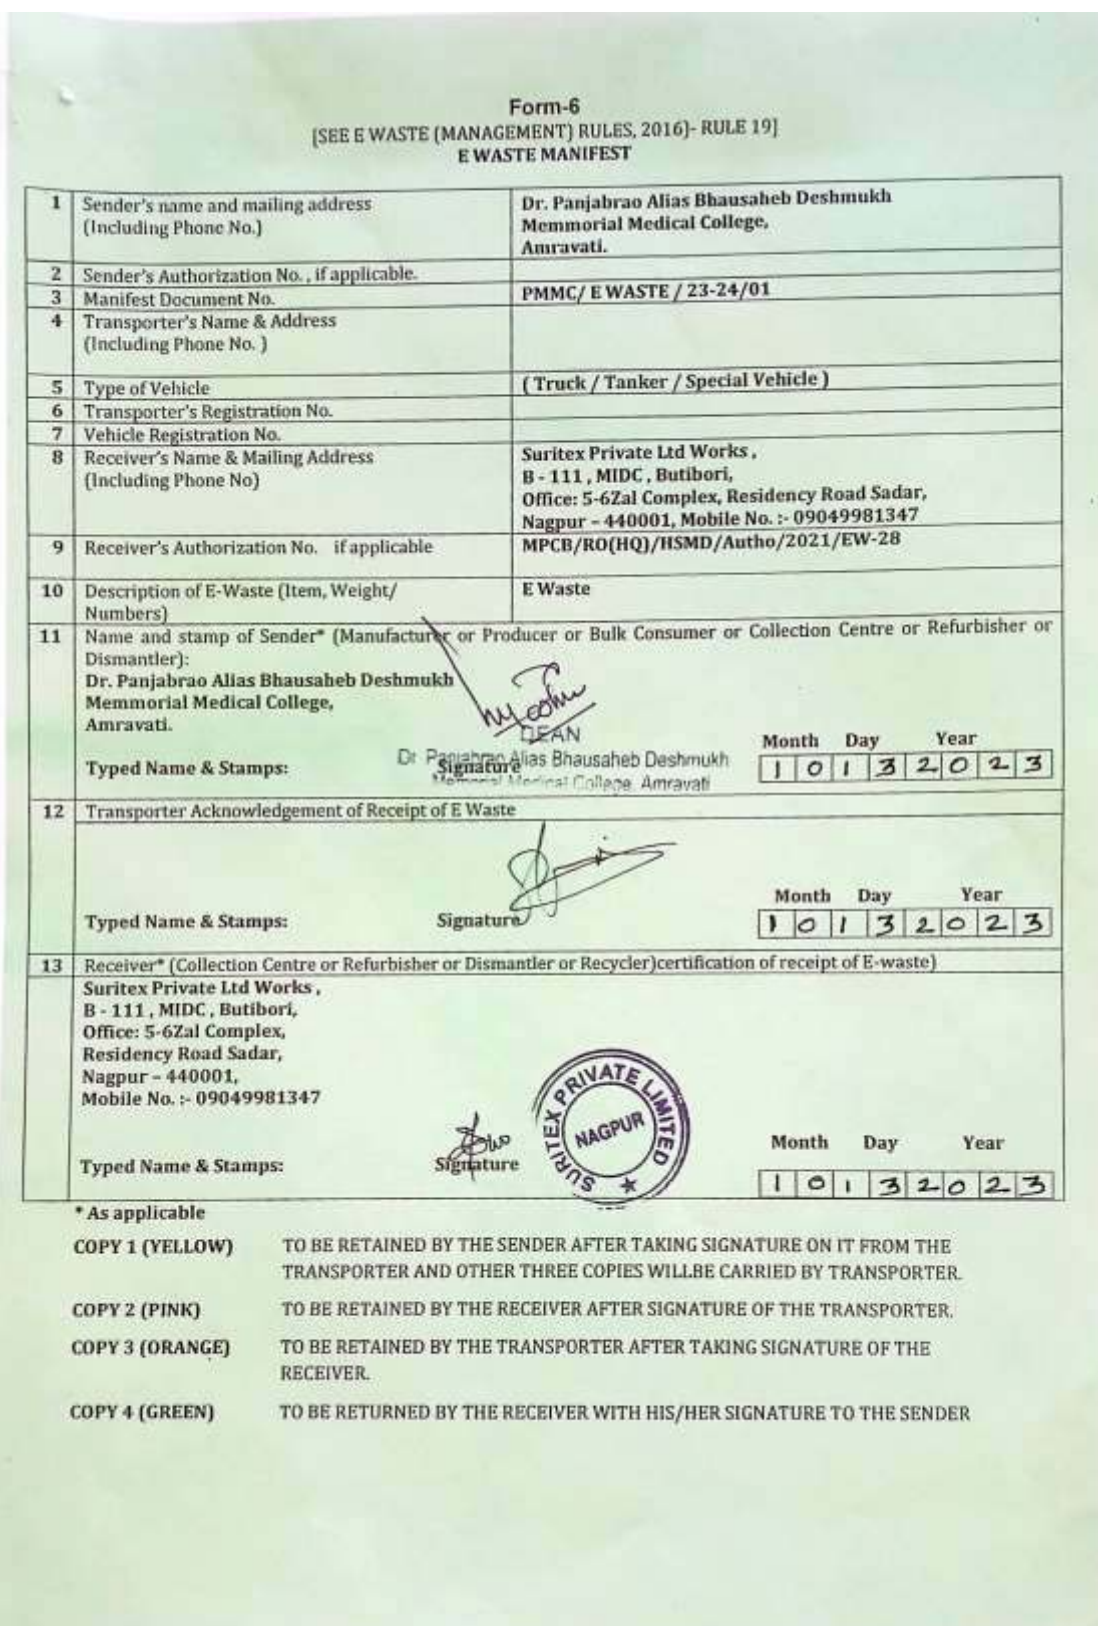 Form-6
[SEE E WASTE (MANAGEMENT) RULES, 2016]- RULE 19]
E WASTE MANIFEST
1 Sender's name and mailing address
(Including Phone No.)
Dr. Panjabrao Alias Bhausaheb Deshmukh
Memmorial Medical College,
Amravati.
2 Sender's Authorization No. , if applicable.
3 Manifest Document No.
PMMC/ E WASTE / 23-24/01
4 Transporter's Name & Address
(Including Phone No. )
5 Type of Vehicle
( Truck / Tanker / Special Vehicle )
6 Transporter's Registration No.
7 Vehicle Registration No.
8 Receiver's Name & Mailing Address
(Including Phone No)
Suritex Private Ltd Works ,
B - 111 , MIDC , Butibori,
Office: 5-6Zal Complex, Residency Road Sadar,
Nagpur – 440001, Mobile No. :- 09049981347
9 Receiver's Authorization No. if applicable
MPCB/RO(HQ)/HSMD/Autho/2021/EW-28
10 Description of E-Waste (Item, Weight/
Numbers)
E Waste
11 Name and stamp of Sender* (Manufacturer or Producer or Bulk Consumer or Collection Centre or Refurbisher or
Dismantler):
Dr. Panjabrao Alias Bhausaheb Deshmukh
Memmorial Medical College,
Amravati.
DEAN
Dr. Panjabrao Alias Bhausaheb Deshmukh
Memorial Medical College, Amravati
Typed Name & Stamps: Signature
Month Day Year
1 0 1 3 2 0 2 3
12 Transporter Acknowledgement of Receipt of E Waste
Month Day Year
Typed Name & Stamps: Signature
1 0 1 3 2 0 2 3
13 Receiver* (Collection Centre or Refurbisher or Dismantler or Recycler)certification of receipt of E-waste)
Suritex Private Ltd Works ,
B - 111 , MIDC , Butibori,
Office: 5-6Zal Complex,
Residency Road Sadar,
Nagpur – 440001,
Mobile No. :- 09049981347
SURITEX PRIVATE LIMITED
NAGPUR
Month Day Year
Typed Name & Stamps: Signature
1 0 1 3 2 0 2 3
* As applicable
COPY 1 (YELLOW) TO BE RETAINED BY THE SENDER AFTER TAKING SIGNATURE ON IT FROM THE
TRANSPORTER AND OTHER THREE COPIES WILLBE CARRIED BY TRANSPORTER.
COPY 2 (PINK) TO BE RETAINED BY THE RECEIVER AFTER SIGNATURE OF THE TRANSPORTER.
COPY 3 (ORANGE) TO BE RETAINED BY THE TRANSPORTER AFTER TAKING SIGNATURE OF THE
RECEIVER.
COPY 4 (GREEN) TO BE RETURNED BY THE RECEIVER WITH HIS/HER SIGNATURE TO THE SENDER